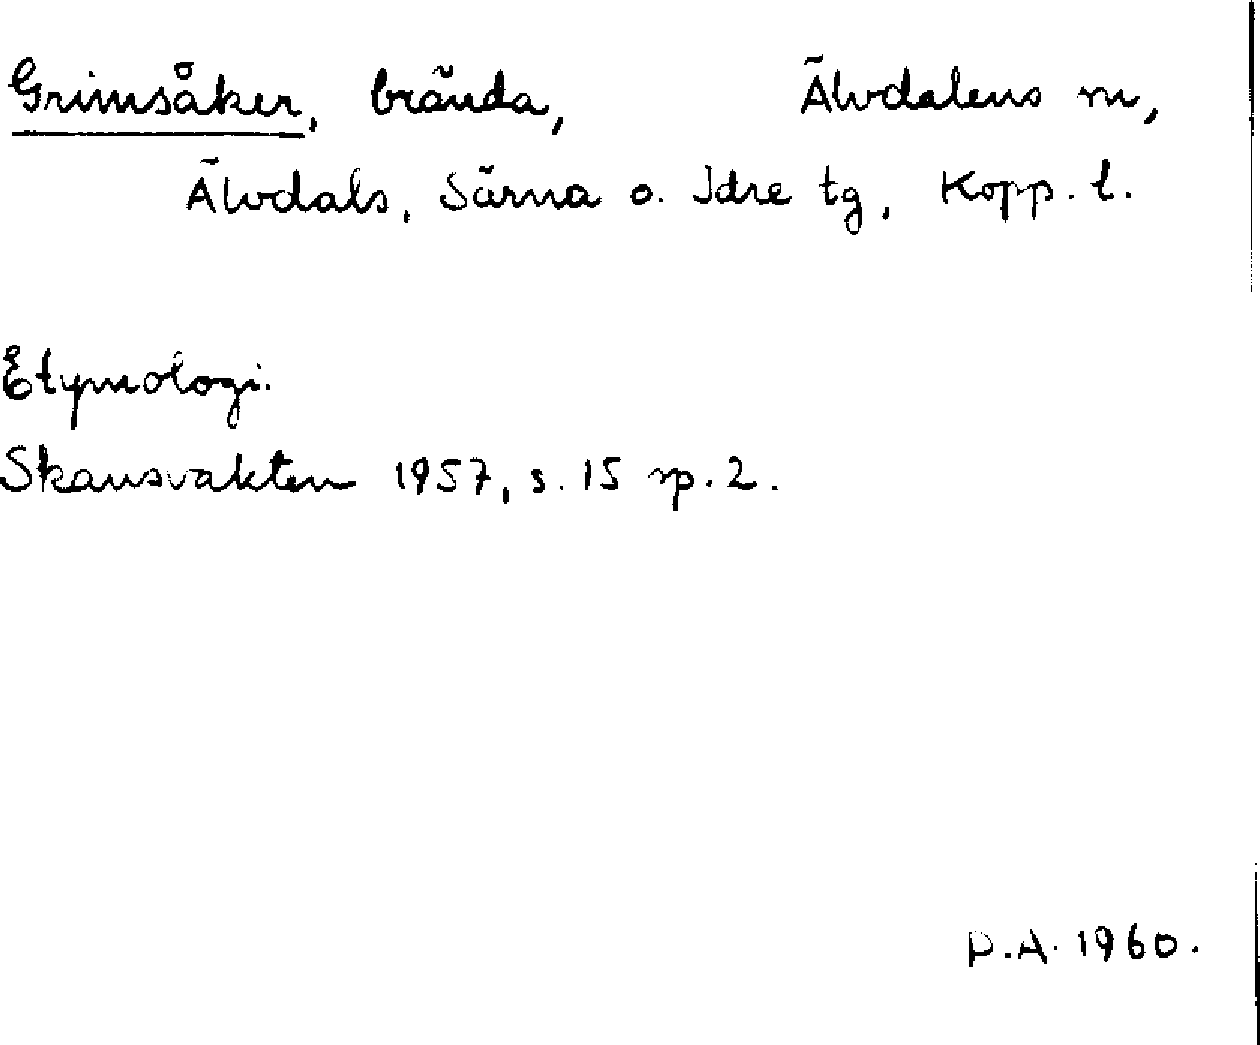 Grimsåker, brända, Älvdalens sn,
Älvdals, Särna o. Idre tg, Kopp. l.
Etymologi.
Skansvakten 1957, s. 15 sp. 2.
P.A. 1960.